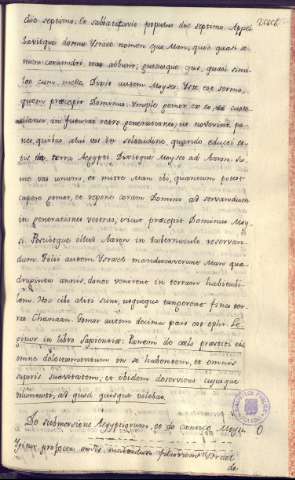 die septimo, et sabbatizavit populus die septimo. Appel
lavitque domus Israel nomen ejus Man; quod quasi se
men coriandri erat album; gustusque ejus, quasi simi
lae cum melle. Dixit autem Moyses: Iste est sermo,
quem praecepit Dominus: Imple gomor ex eo, et custo
diatur in futuras retro generationes, ut noverint pa
nem, quibus alui vos in solitudine, quando educti es
tis de terra Aegypti. Dixitque Moyses ad Aaron: Su
me vas unum, et mitte Man ibi, quantum potest
capere gomor, et repone coram Domino ad servandum
in generationes vestras, sicut praecepit Dominus Moy
si. Posuitque illud Aaron in tabernaculo reservan
dum. Filii autem Israel manducaverunt Man qua
draginta annis, donec venirent in terram habitabi
lem. Hoc cibo aliti sunt, usquequo tangerent fines ter
rae Chanaan. Gomor autem decima pars est ephi. Le
gitur in libro Sapientiae: Panem de coelo praestitit eis
omne delectamentum in se habentem, et omnis
saporis suavitatem, et ibidem deserviens cujusque
voluntati, ad quod quisque volebat.
De submersione Aegyptiorum, et de cantico Moysi
Igitur profectus
de